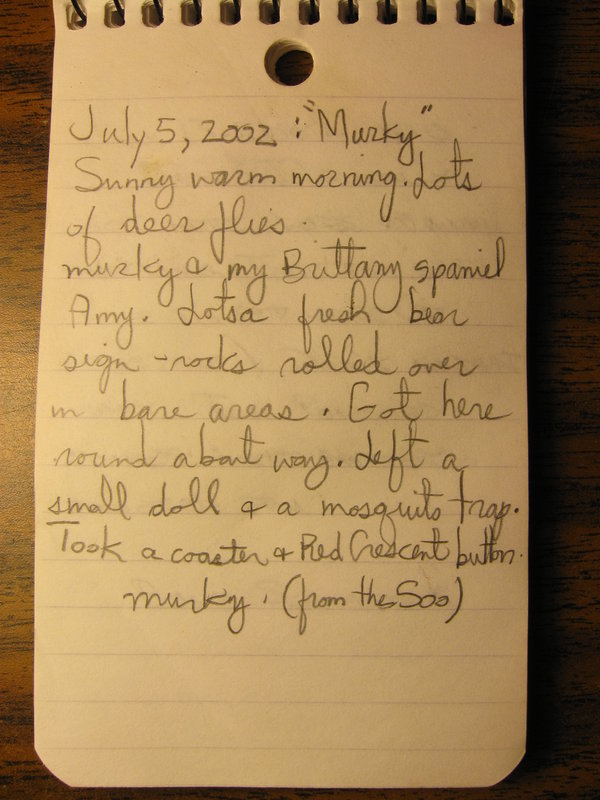 July 5, 2002 : "Murky"
Sunny warm morning. Lots
of deer flies.
murky & my Brittany spaniel
Amy. Lotsa fresh bear
sign - rocks rolled over
in bare areas. Got here
round about way. Left a
small doll & a mosquito trap.
Took a coaster & Red Crescent button.
murky. (from the Soo)